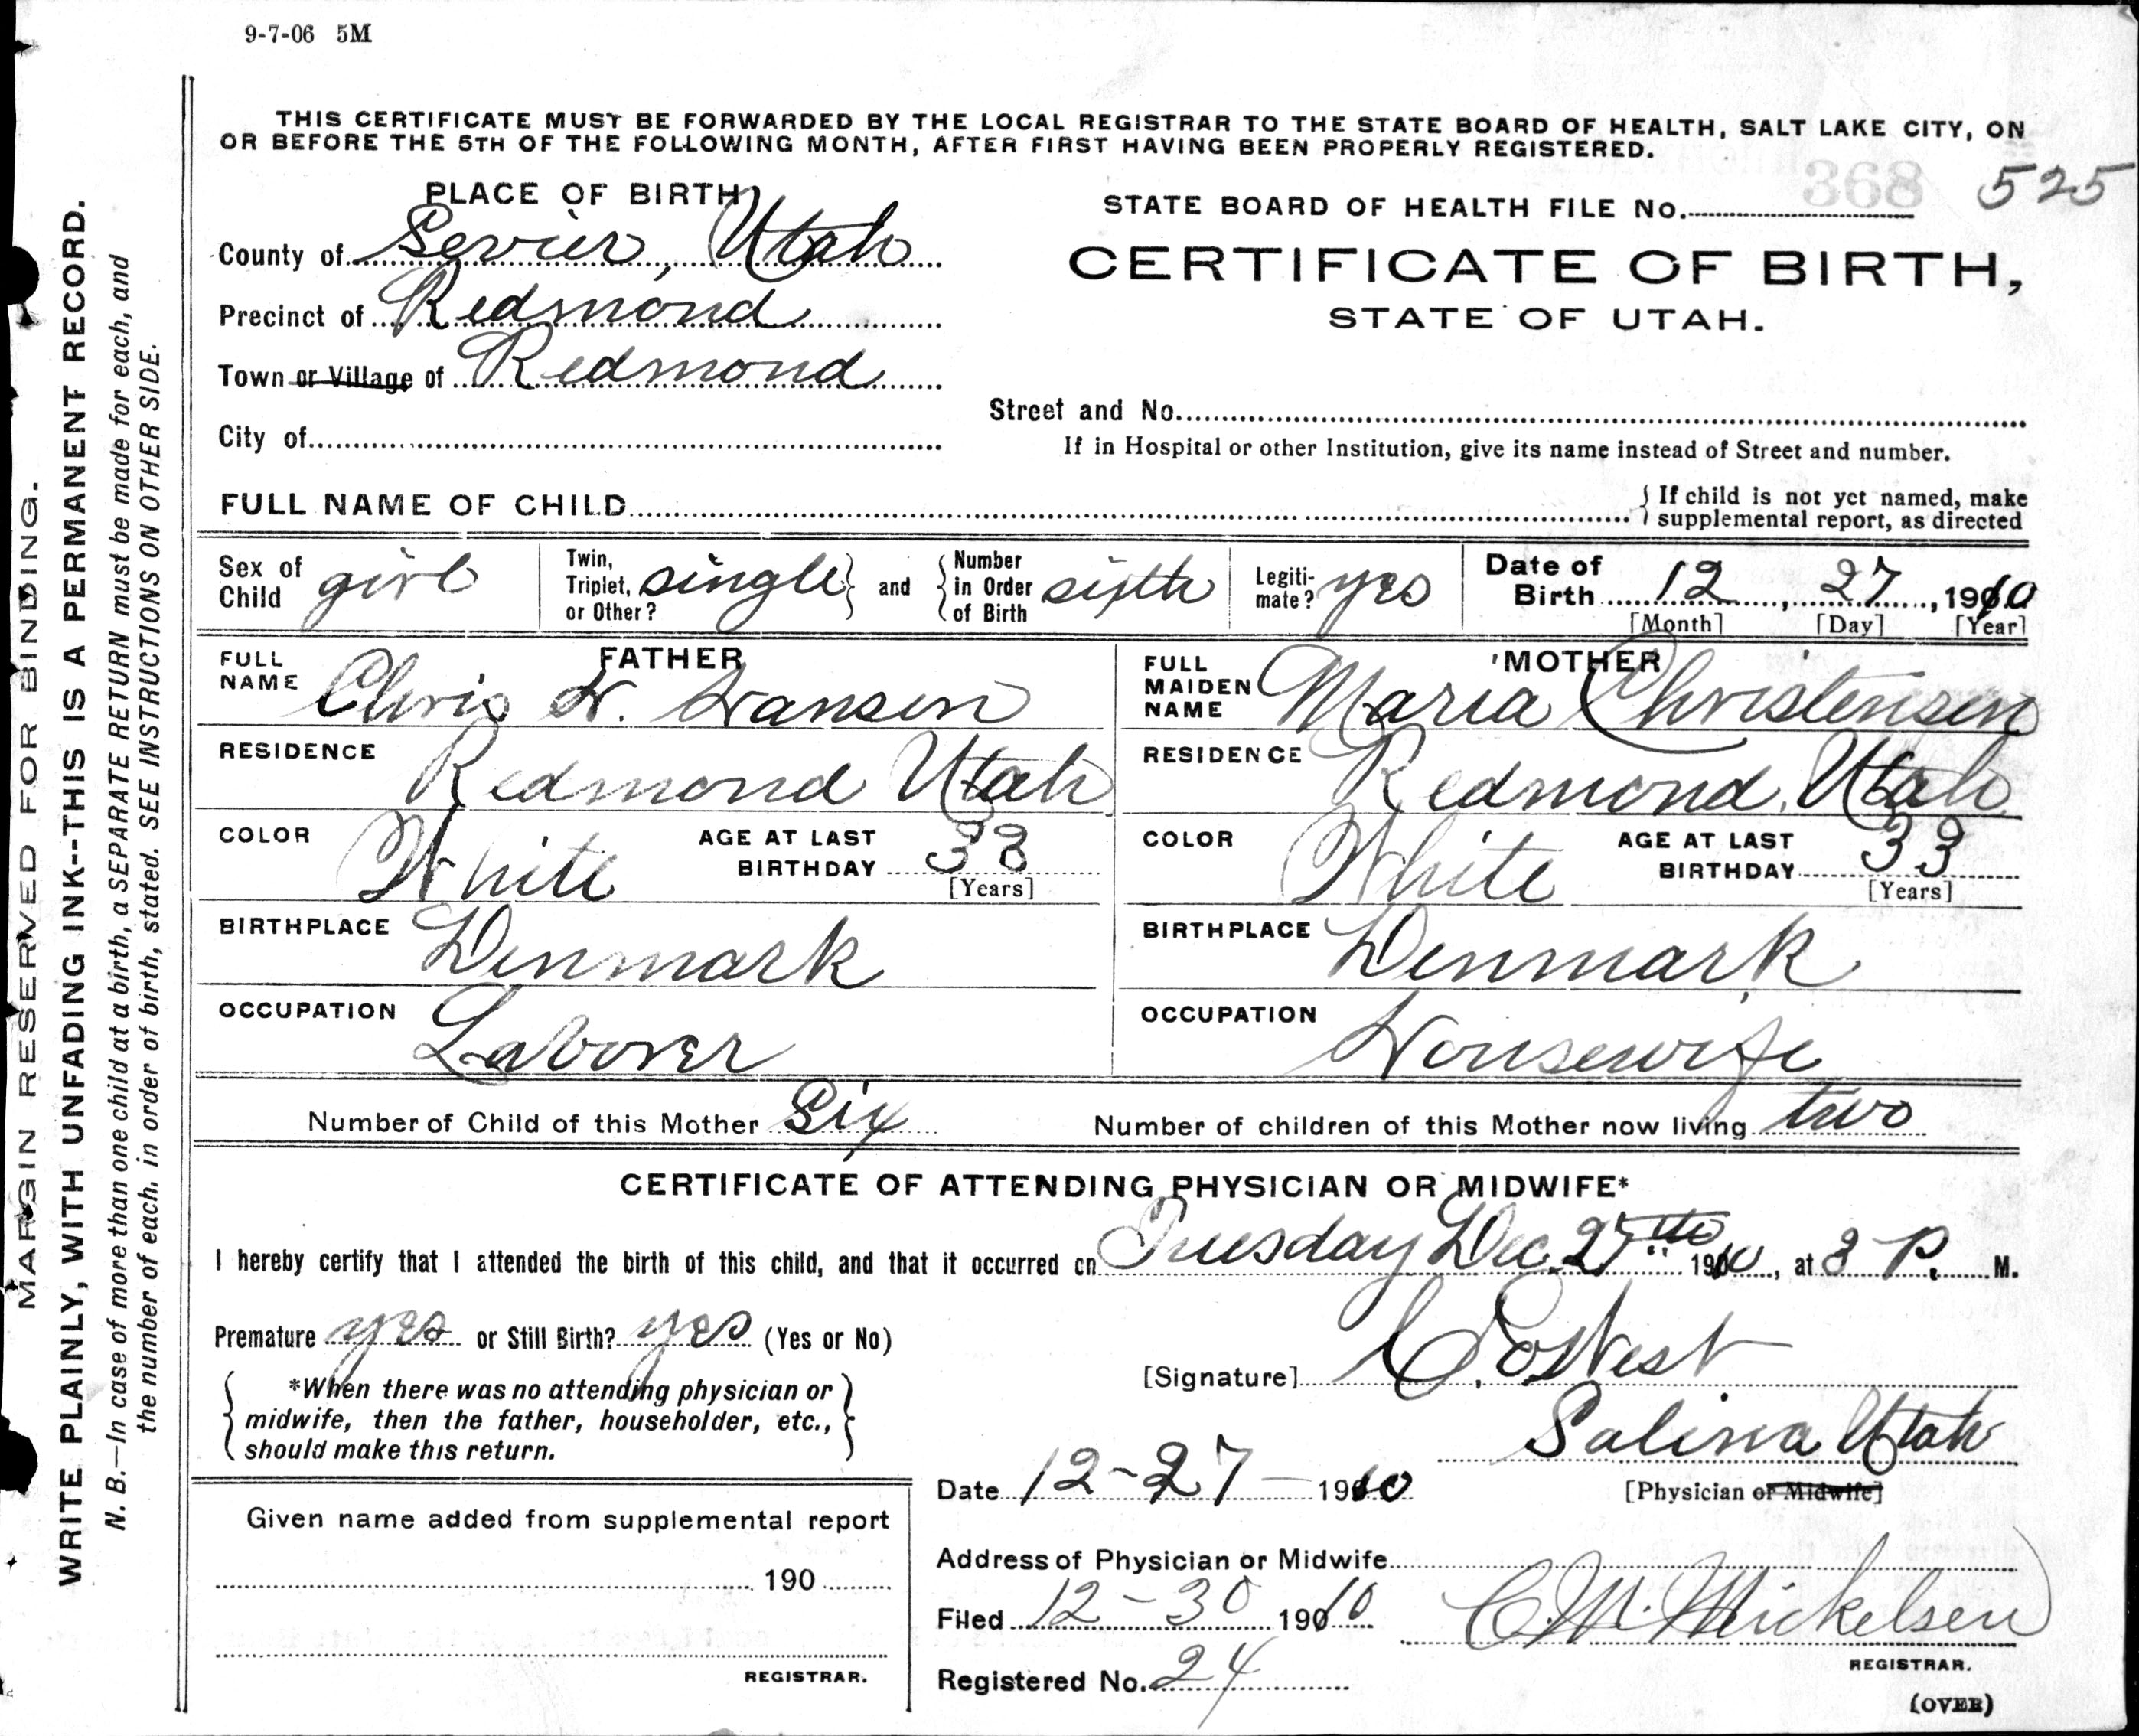 9-7-06 5M
THIS CERTIFICATE MUST BE FORWARDED BY THE LOCAL REGISTRAR TO THE STATE BOARD OF HEALTH, SALT LAKE CITY, ON
OR BEFORE THE 5TH OF THE FOLLOWING MONTH, AFTER FIRST HAVING BEEN PROPERLY REGISTERED.
PLACE OF BIRTH
County of Sevier, Utah
Precinct of Redmond
Town or Village of Redmond
City of
368 525
STATE BOARD OF HEALTH FILE No.
CERTIFICATE OF BIRTH,
STATE OF UTAH.
Street and No.
If in Hospital or other Institution, give its name instead of Street and number.
FULL NAME OF CHILD
{ If child is not yet named, make
supplemental report, as directed
Sex of Child girl
Twin, Triplet, or Other? single } and { Number in Order of Birth sixth
Legiti-mate? yes
Date of Birth 12, 27, 1910
[Month] [Day] [Year]
FATHER
FULL NAME Chris H. Hansen
RESIDENCE Redmond Utah
COLOR White AGE AT LAST BIRTHDAY 38
[Years]
BIRTHPLACE Denmark
OCCUPATION Laborer
MOTHER
FULL MAIDEN NAME Maria Christensen
RESIDENCE Redmond, Utah
COLOR White AGE AT LAST BIRTHDAY 33
[Years]
BIRTHPLACE Denmark
OCCUPATION Housewife
Number of Child of this Mother Six Number of children of this Mother now living two
CERTIFICATE OF ATTENDING PHYSICIAN OR MIDWIFE*
I hereby certify that I attended the birth of this child, and that it occurred on Tuesday Dec. 27th 1910, at 8 P. M.
Premature yes or Still Birth? yes (Yes or No)
*When there was no attending physician or
midwife, then the father, householder, etc.,
should make this return.
[Signature] West
Salina Utah
Date 12-27-1910
[Physician or Midwife]
Given name added from supplemental report
190
REGISTRAR.
Address of Physician or Midwife
Filed 12-30 1910 C. M. Mickelsen
REGISTRAR.
Registered No. 24
(OVER)
MARGIN RESERVED FOR BINDING.
WRITE PLAINLY, WITH UNFADING INK--THIS IS A PERMANENT RECORD.
N. B.—In case of more than one child at a birth, a SEPARATE RETURN must be made for each, and
the number of each, in order of birth, stated. SEE INSTRUCTIONS ON OTHER SIDE.